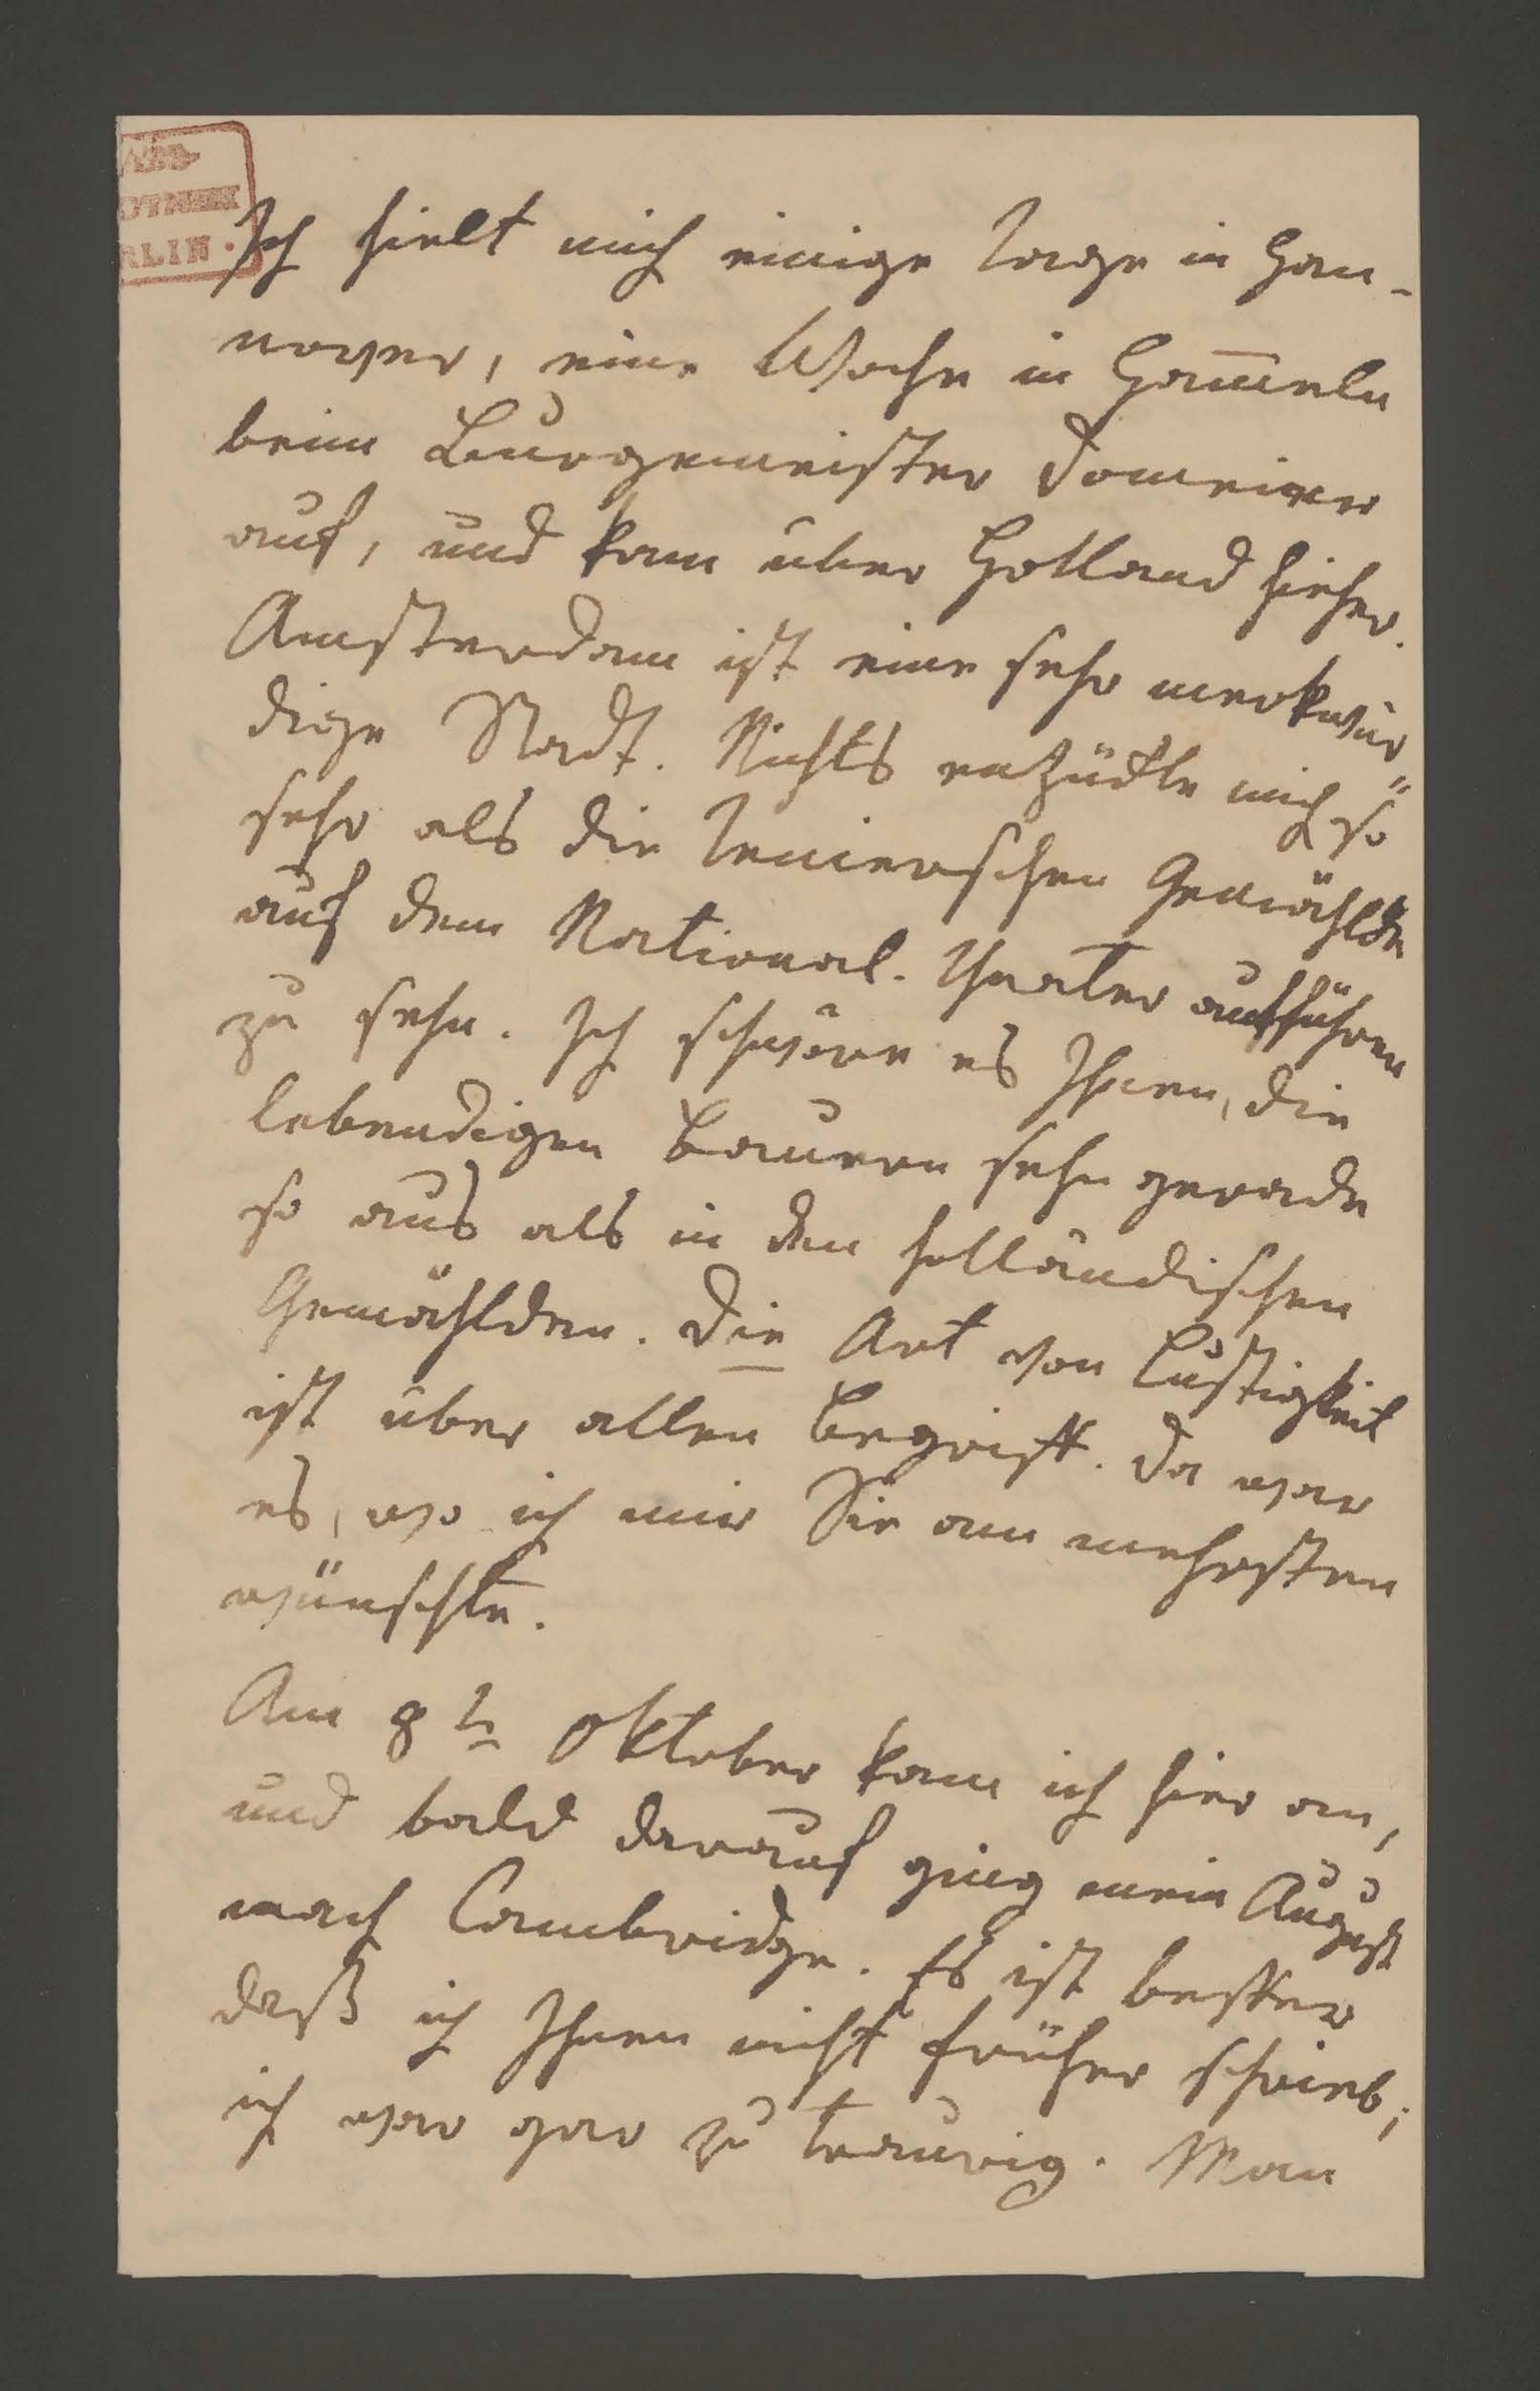 Ich hielt mich einige Tage in Han-
nover, eine Woche in Ham̄eln
beim Burgemeister Domeier
auf, und kam über Holland hieher.
Amsterdam ist eine sehr merkwür"
dige Stadt. Nichts entzückte mich so
sehr als die Tenierschen Gemählde
auf dem National-Theater aufführen
zu sehn. Ich schwöre es Ihnen, die
lebendigen Bauern sehn gerade
so aus als in den holländischen
Gemählden. Die Art von Lustigkeit
ist über allen Begriff. Da war
es, wo ich mir Sie am mehrsten
wünschte.
Am 8 tn Oktober kam ich hier an,
und bald darauf ging mein August
nach Cambridge. Es ist besser
daß ich Ihnen nicht früher schrieb;
ich war gar zu traurig. Man